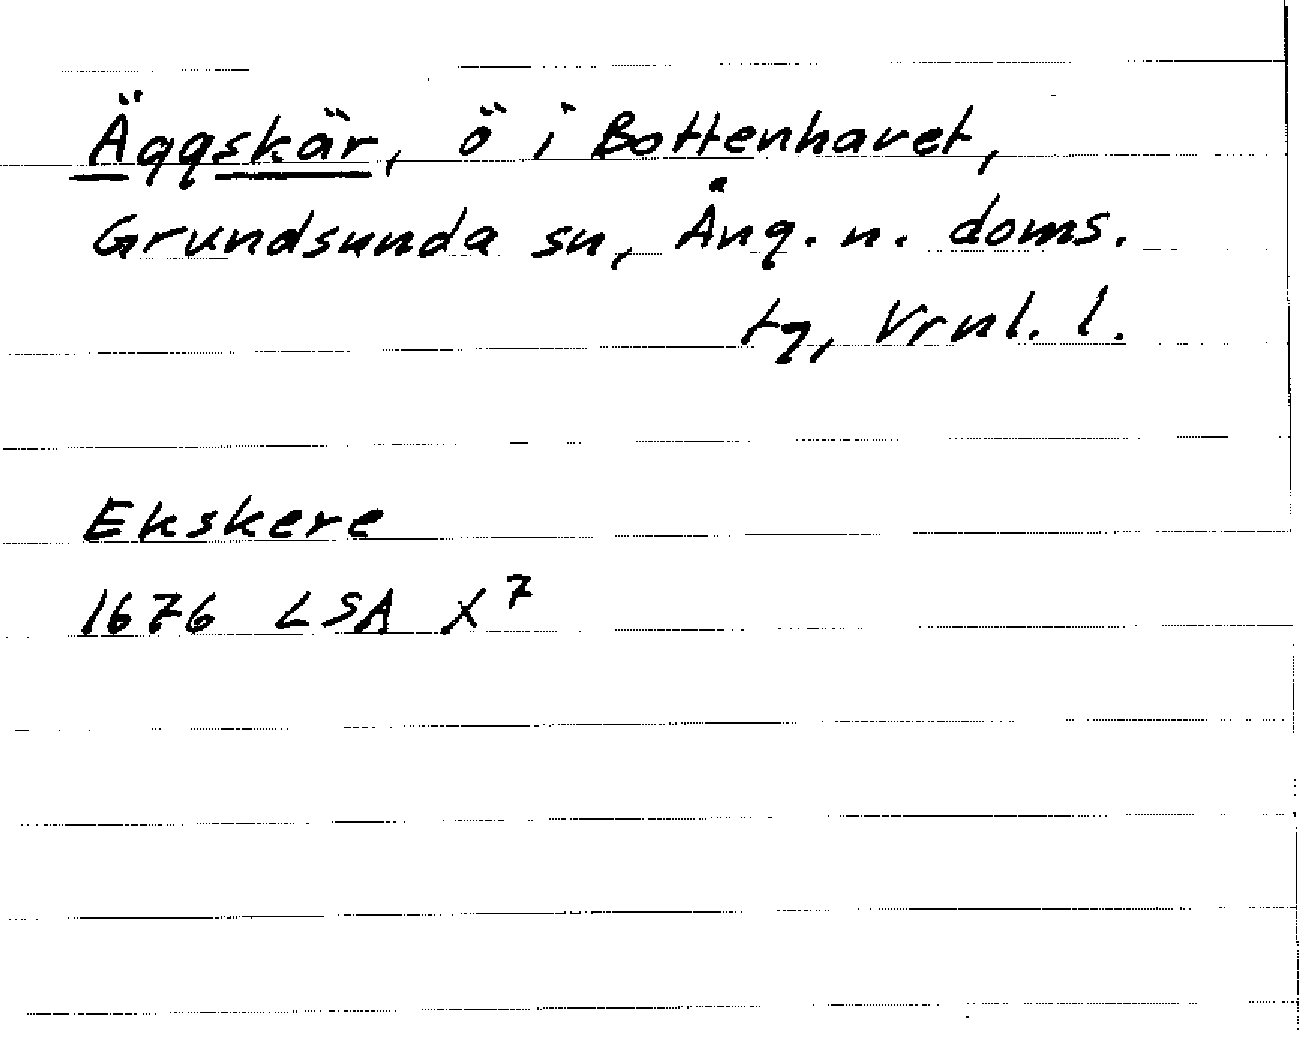 Äggskär, ö i Bottenhavet,
Grundsunda sn, Ång. n. doms.
tg, Vrnl. l.
Ekskere
1676 LSA X⁷